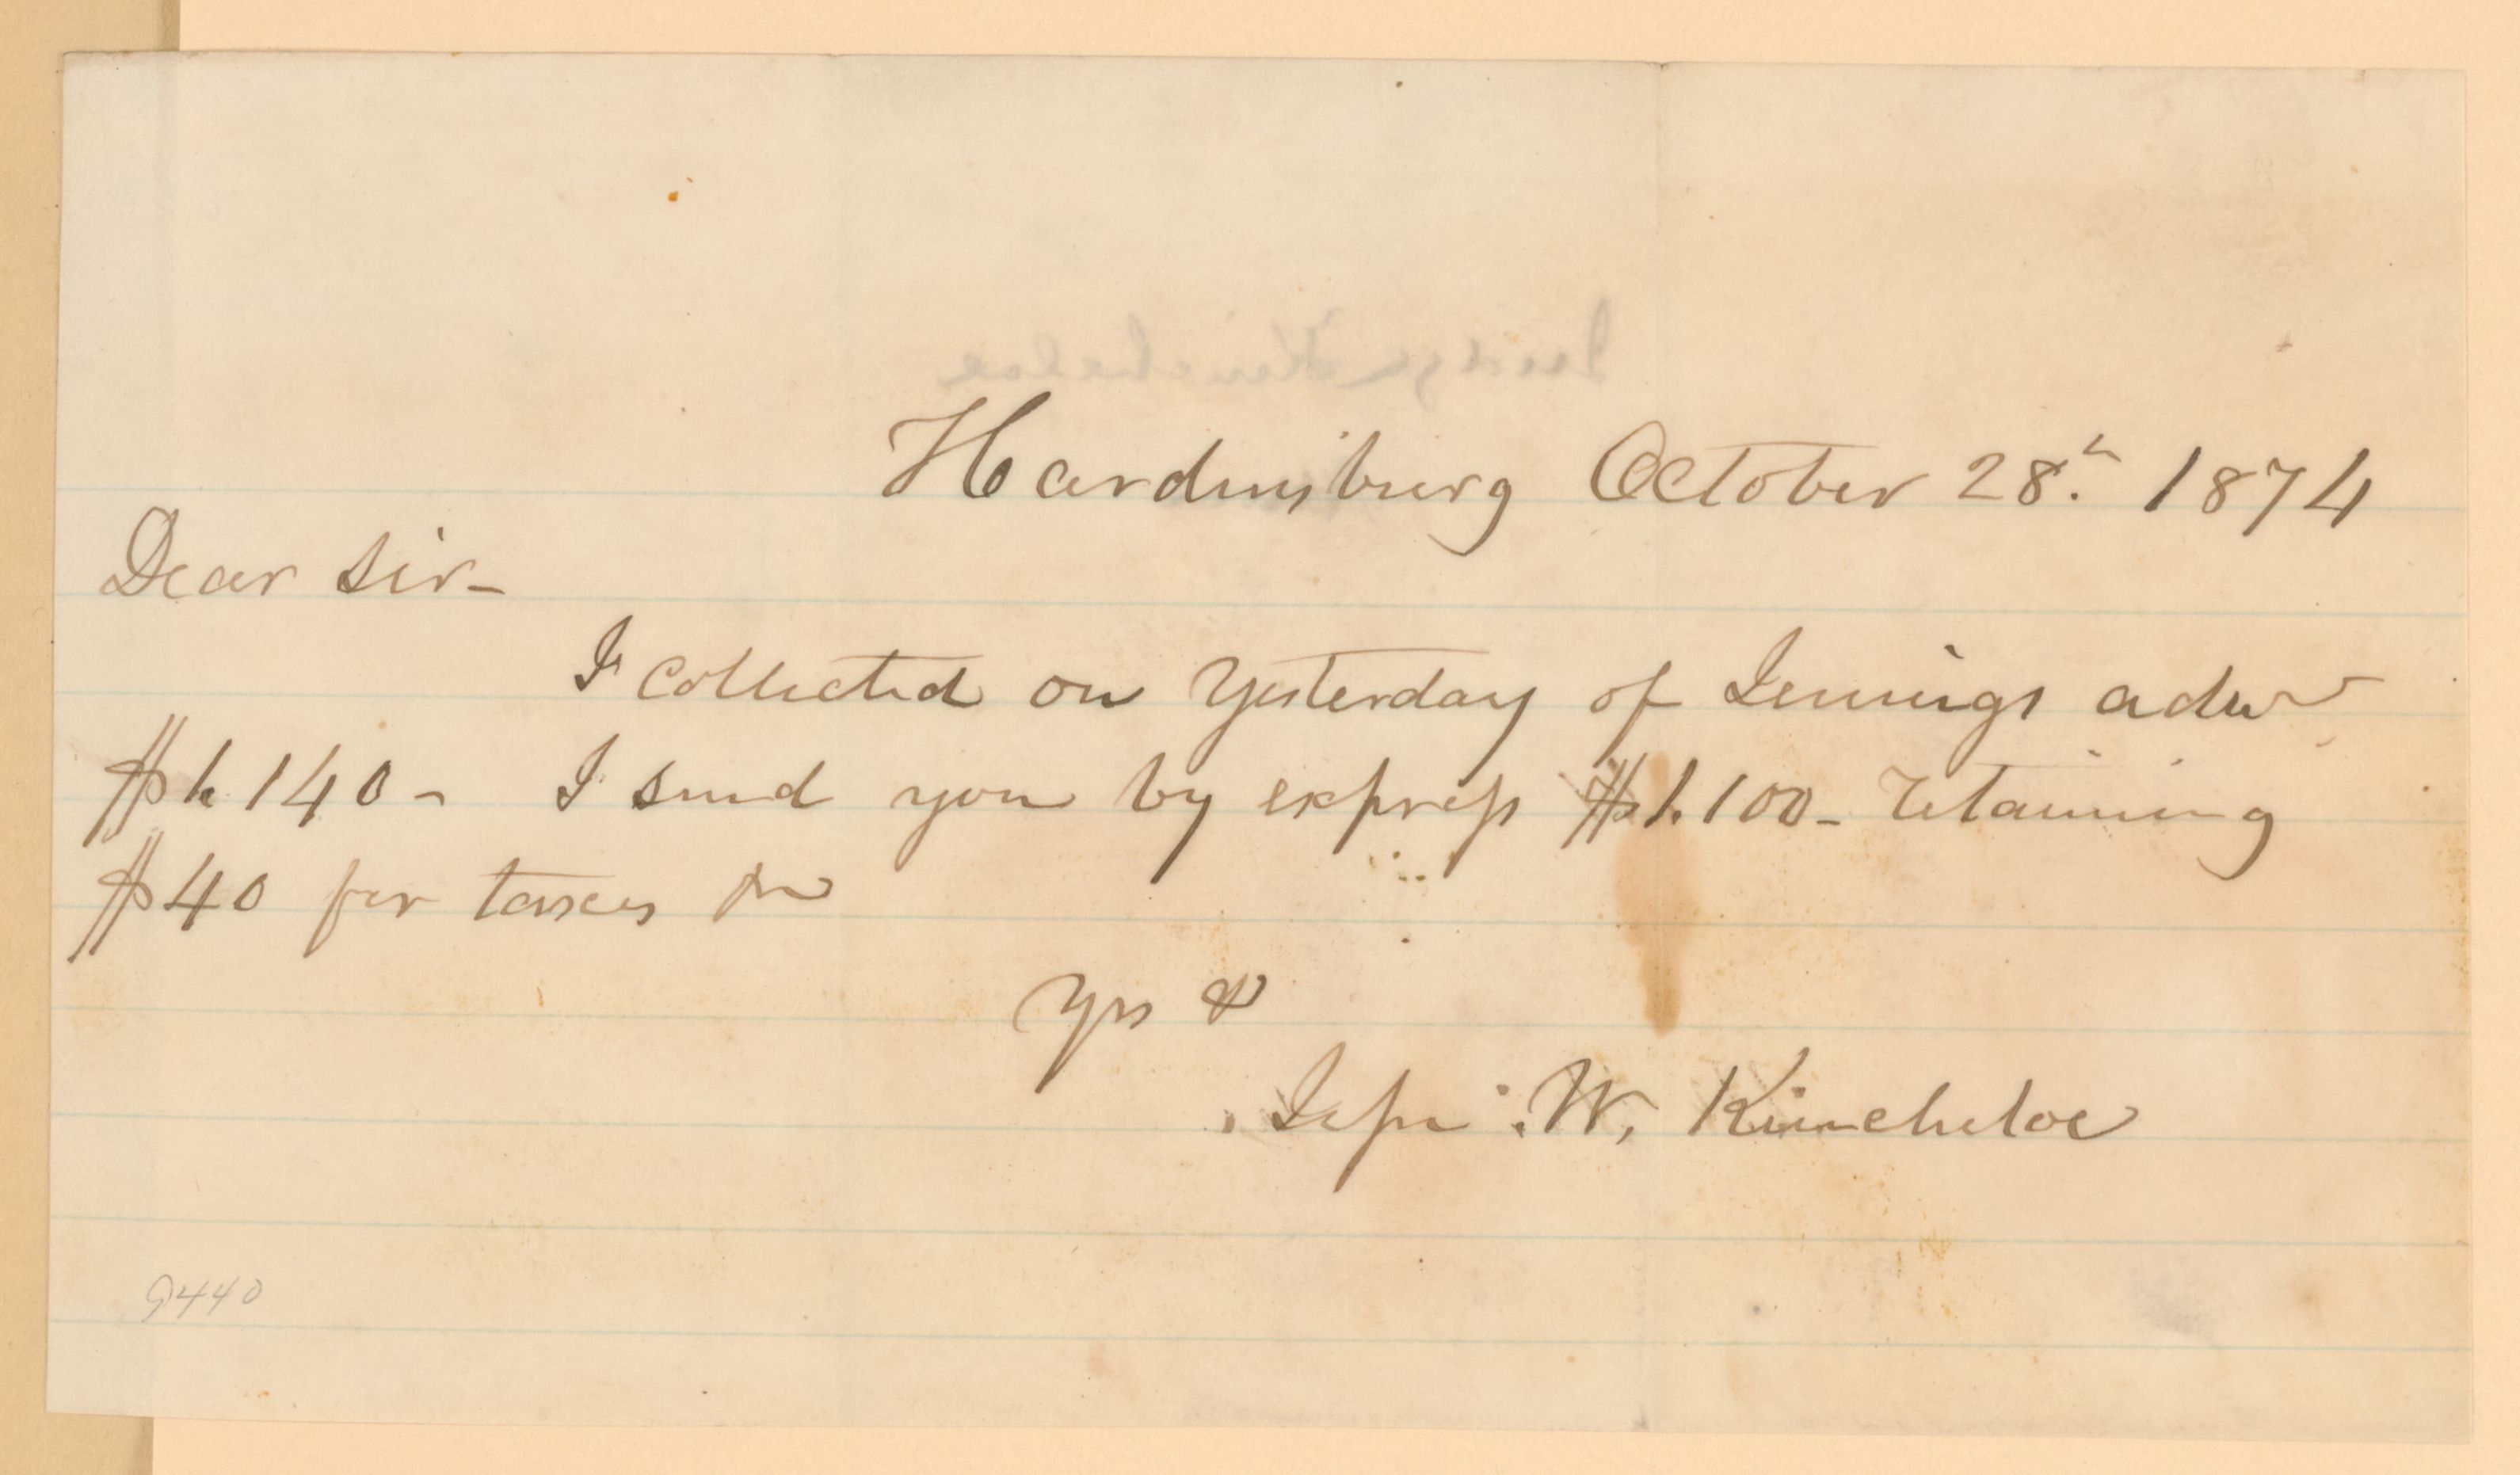 Judge Kincheloe
Hardinsburg October 28.th 1874
Dear Sir-
I collected on yesterday of Jennings admr
$1.140- I send you by express $1.100- retaining
$40 for taxes &c
Yrs &
Jesse W. Kincheloe
9440